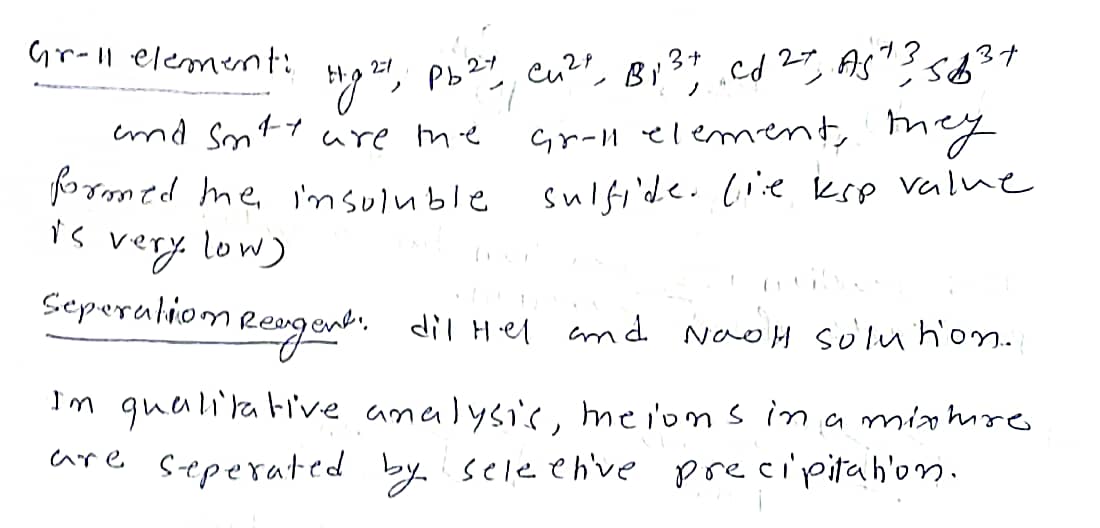 Gr-II element: Hg²⁺, Pb²⁺, Cu²⁺, Bi³⁺, Cd²⁺, As⁺³, Sb³⁺
and Sn⁴⁺ are the Gr-II element, they
formed the insoluble sulfide. (i.e Ksp value
is very low)
Seperation Reagent: dil HCl and NaOH solution.
In qualitative analysis, the ions in a mixture
are seperated by selective precipitation.